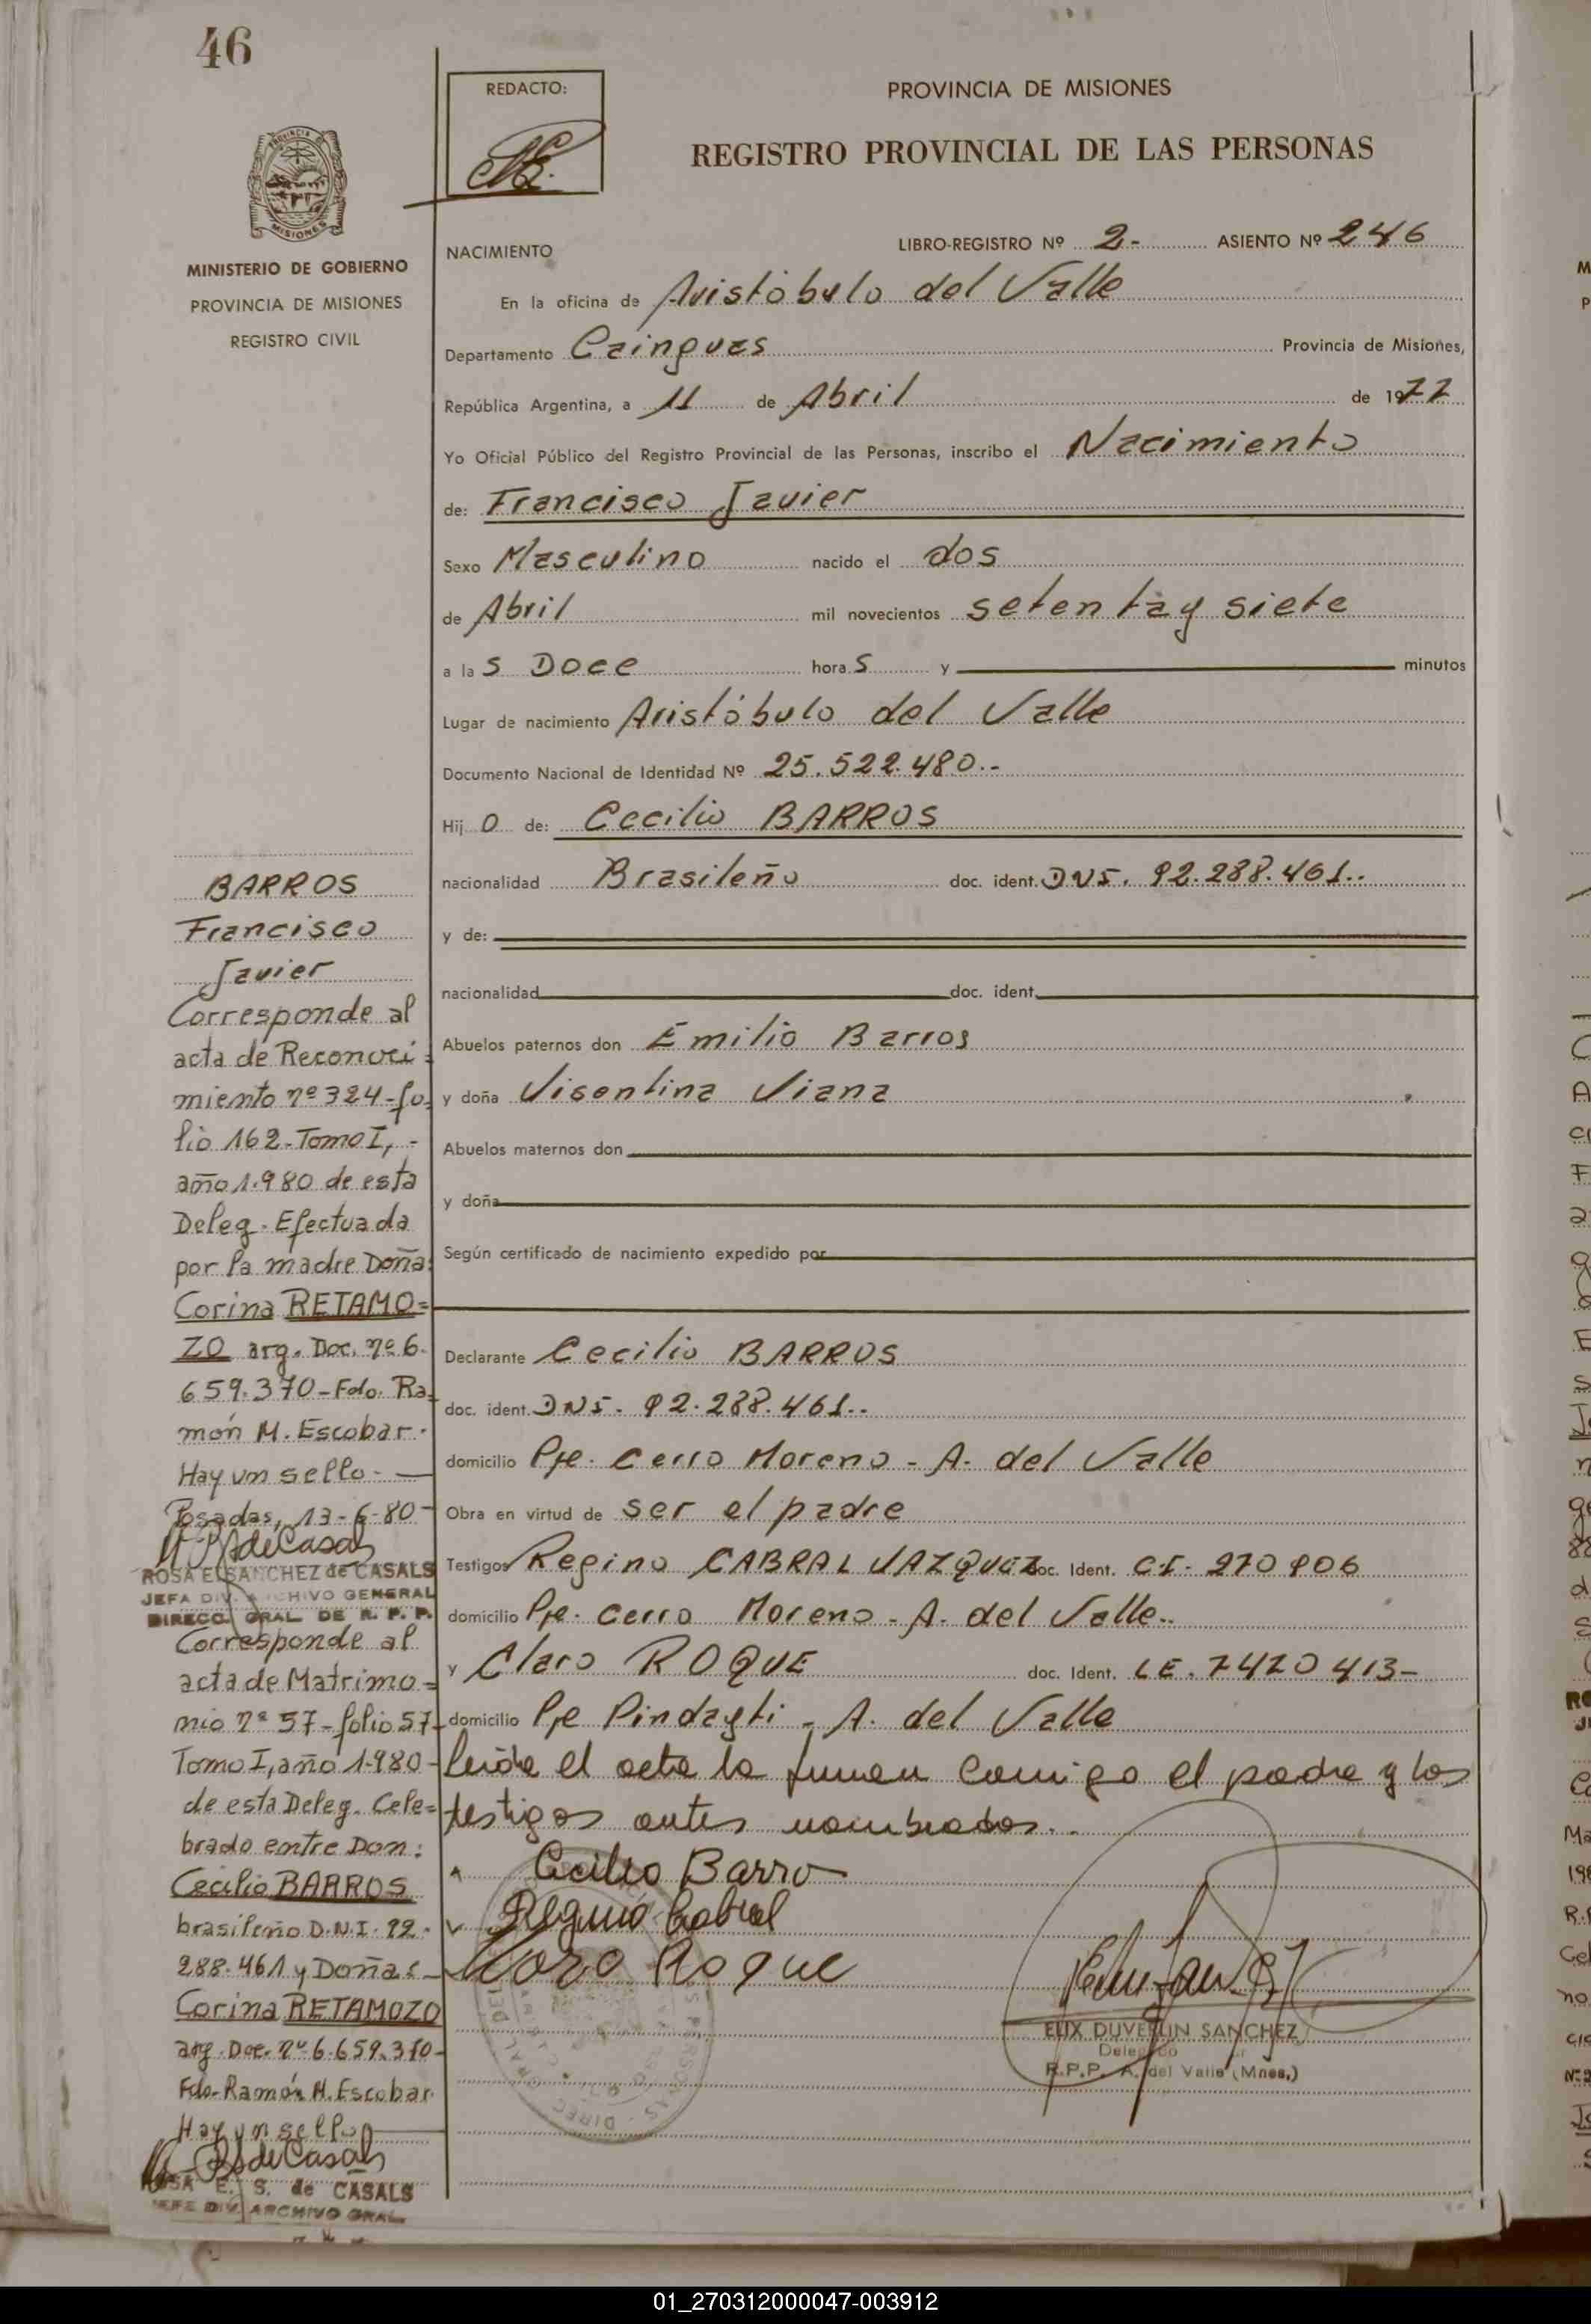 46
REDACTO:
PROVINCIA DE MISIONES
REGISTRO PROVINCIAL DE LAS PERSONAS
PROVINCIA
MISIONES
MINISTERIO DE GOBIERNO
PROVINCIA DE MISIONES
REGISTRO CIVIL
NACIMIENTO
LIBRO-REGISTRO Nº 2.- ASIENTO Nº 246
En la oficina de Aristóbulo del Valle
Departamento Cainguas Provincia de Misiones,
República Argentina, a 11 de Abril de 1977
Yo Oficial Público del Registro Provincial de las Personas, inscribo el Nacimiento
de: Francisco Javier
Sexo Masculino nacido el dos
de Abril mil novecientos setenta y siete
a las Doce horas y minutos
Lugar de nacimiento Aristóbulo del Valle
Documento Nacional de Identidad Nº 25.522.480.-
Hijo de: Cecilio BARROS
nacionalidad Brasileño doc. ident. DNI. 92.288.461..
y de:
nacionalidad doc. ident.
Abuelos paternos don Emilio Barros
y doña Visentina Viana
Abuelos maternos don
y doña
Según certificado de nacimiento expedido por
Declarante Cecilio BARROS
doc. ident. DNI. 92.288.461..
domicilio Pje. Cerro Moreno - A. del Valle
Obra en virtud de ser el padre
Testigos Regino CABRAL VAZQUEZ doc. Ident. C.I. 270906
domicilio Pje. Cerro Moreno - A. del Valle..
y Claro ROQUE doc. Ident. LE. 7420413-
domicilio Pje Pindayti - A. del Valle
Leida el acta la firman conmigo el padre y los
testigos antes nombrados..
Cecilio Barro
Regino Cabral
Claro Roque
ELIX DUVERLIN SANCHEZ
R.P.P. A. del Valle (Mnes,)
BARROS
Francisco
Javier
Corresponde al
acta de Reconoci=
miento nº 324-fo=
lio 162-Tomo I,-
año 1.980 de esta
Deleg. Efectuada
por la madre Doña:
Corina RETAMO=
ZO arg. Doc. nº 6.
659.370-Fdo. Ra=
món M. Escobar.
Hay un sello-
Posadas, 13-6-80-
ROSA E. SANCHEZ de CASALS
JEFA DIV. ARCHIVO GENERAL
DIRECC. GRAL DE R. P. P.
Corresponde al
acta de Matrimo=
nio nº 57-folio 57-
Tomo I, año 1.980-
de esta Deleg. Cele=
brado entre Don:
Cecilio BARROS
brasileño D.N.I. 92.
288.461 y Doña:
Corina RETAMOZO
arg. Doc. nº 6.659.370-
Fdo-Ramón M. Escobar
Hay un sello
ROSA E. S. de CASALS
JEFE DIV. ARCHIVO GRAL.
01_270312000047-003912